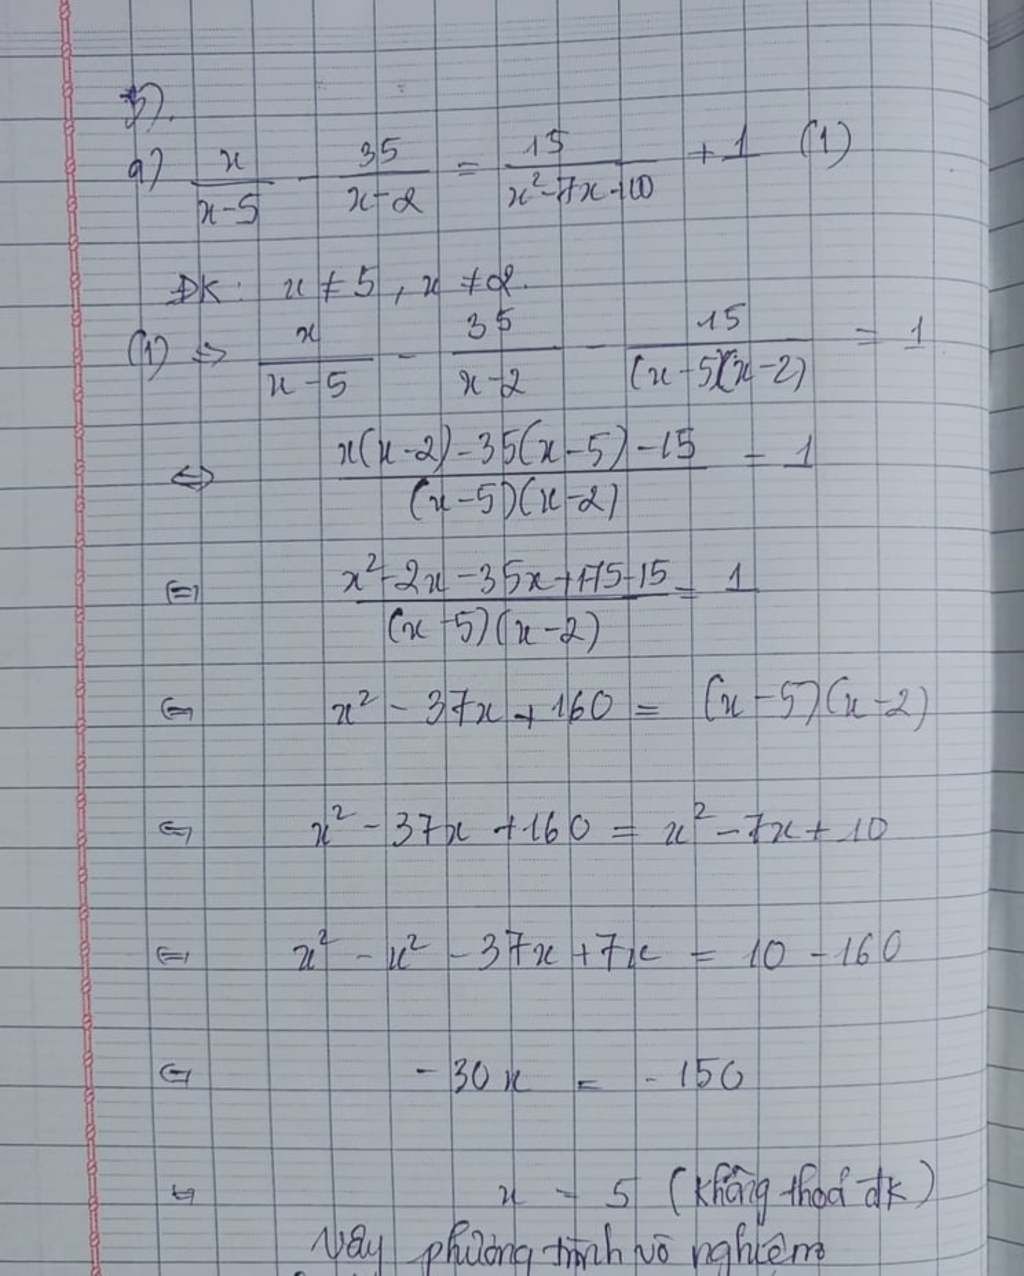 5).
a) x/(x-5) - 35/(x-2) = 15/(x²-7x+10) + 1 (1)
ĐK: x ≠ 5, x ≠ 2.
(1) ⇔ x/(x-5) - 35/(x-2) - 15/((x-5)(x-2)) = 1
⇔ (x(x-2)-35(x-5)-15)/((x-5)(x-2)) = 1
⇔ (x²-2x-35x+175-15)/((x-5)(x-2)) = 1
⇔ x² - 37x + 160 = (x-5)(x-2)
⇔ x² - 37x + 160 = x² - 7x + 10
⇔ x² - x² - 37x + 7x = 10 - 160
⇔ -30x = -150
⇔ x = 5 (không thoả đk)
Vậy phương trình vô nghiệm